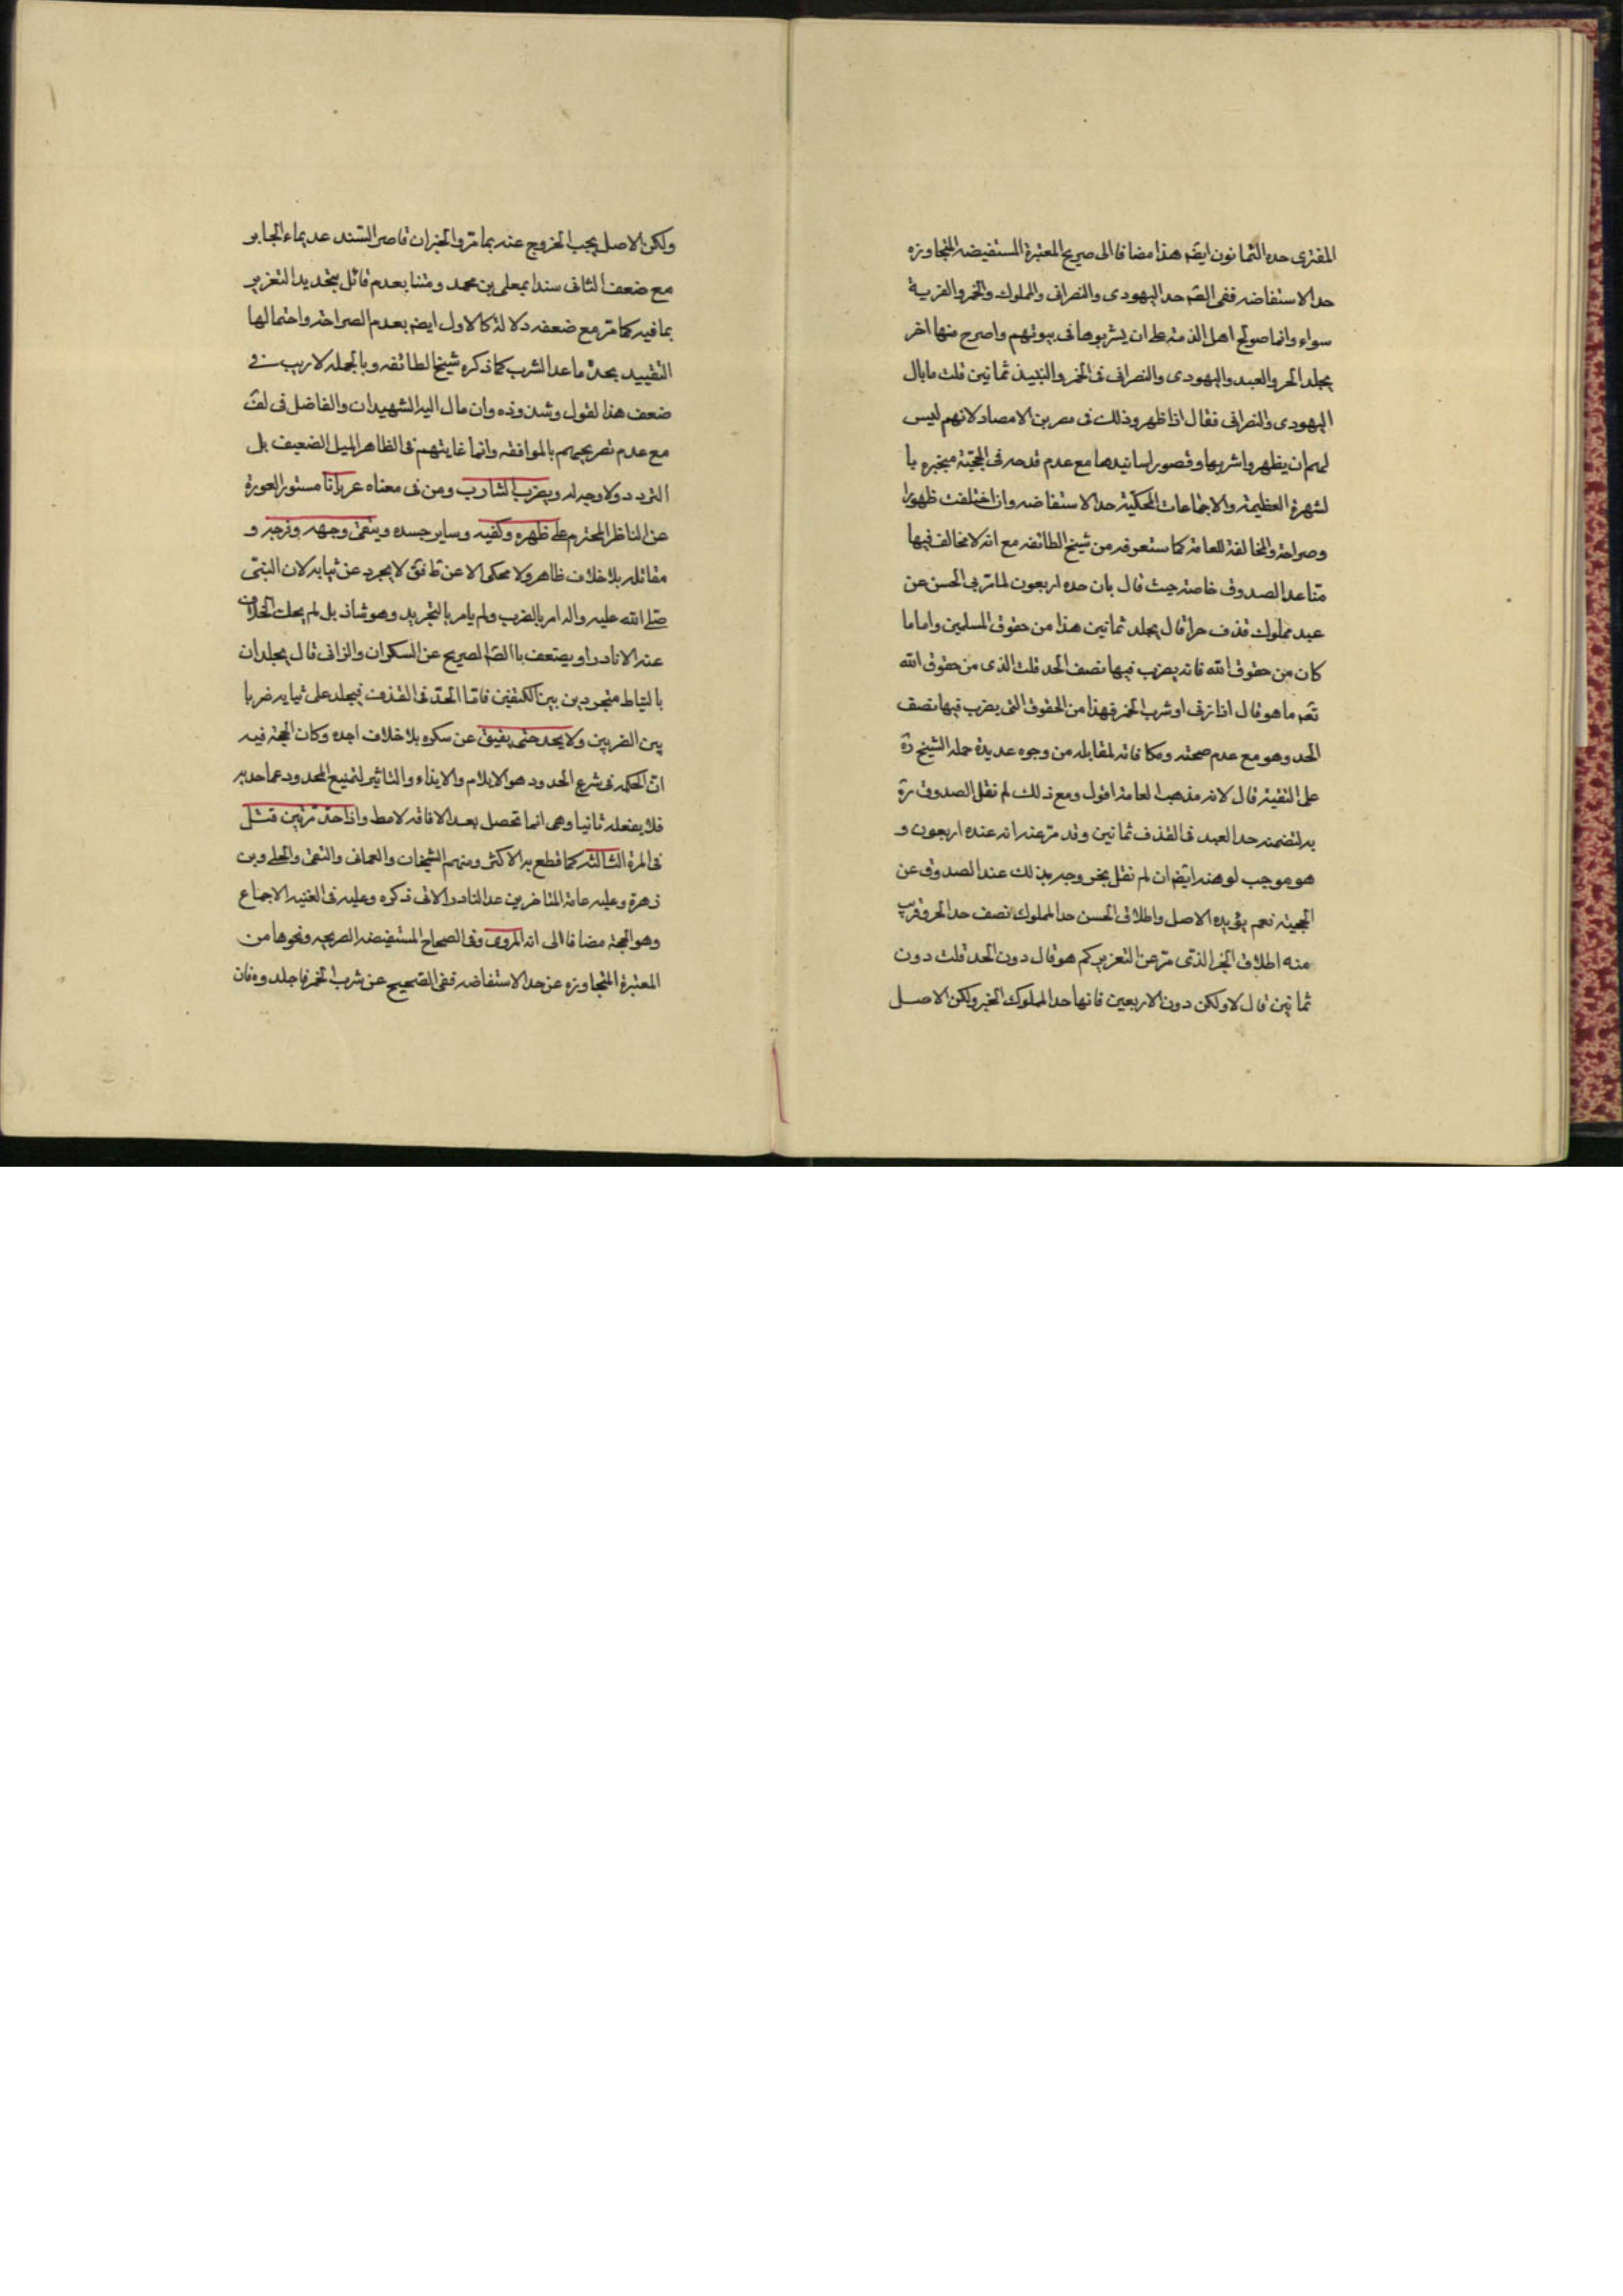 المفتری حده الثمانون ایضه هذا مضافا الی صریح المعتبرة المستفیضه المتجاوزه
حد الاستفاضه ففی الصّ حد الیهودی والنصرانی والمملوک والخمر والفریة
سواء وانما صولح اهل الذمة علی ان یشربوها فی بیوتهم واصرح منها اخر
یجلد الحر والعبد والیهودی والنصرانی فی الخمر والنبیذ ثمانین قلت ما بال
الیهودی والنصرانی فقال اذا ظهر وذلک فی مصر من الامصار لانهم لیس
لهم ان یظهروا شربها وقصور اسانیدها مع عدم قدحه فی الحجیّة منجبره با
لشهرة العظیمة والاجتماعات المحکیّة حد الاستفاضه وان اختلفت ظهورا
وصراحة والمخالفة للعامة کما ستعرفه من شیخ الطائفه مع انه لا مخالف فیها
متا عدا الصدوق خاصة حیث قال بان حده اربعون لما تربی الحسن عن
عبد مملوک قذف حرا قال یجلد ثمانین هذا من حقوق المسلمین واما ما
کان من حقوق الله فانه یضرب فیها نصف الحد قلت الذی من حقوق الله
تعم ما هو قال اذا زنی او شرب الخمر فهذا من الحقوق التی یضرب فیها نصف
الحد وهو مع عدم صحته ومکافاته لمقابله من وجوه عدیدة حمله الشیخ رة
علی التقیة قال لانه مذهب العامة اقول ومع ذلک لم نقل الصدوق رة
به لتضمنه حد العبد فی القذف ثمانین وقد مر عنه انه عنده اربعون و
هو موجب لوهنه ایضه ان لم نقل بخروجه بذلک عند الصدوق عن
الحجیة نعم یؤیده الاصل واطلاق الحسن حد المملوک نصف حد الحر وقریب
منه اطلاق الخبر الذی مر عن التعزیر کم هو قال دون الحد قلت دون
ثمانین قال لا ولکن دون الاربعین فانها حد المملوک الخبر ولکن الاصل
ولکن الاصل یجب الخروج عنه بما مر والخبران قاصر السند عدیماء الجابر
مع ضعف الثانی سندا بمعلی بن محمد ومتنا بعدم قائل بتحدید التعزیر
بما فیه کما مر مع ضعفه دلالة کالاول ایضه بعدم الصراحة واحتمالها
التقیید بحد ما عدا الشرب کما ذکره شیخ الطائفه وبالجمله لا ریب فی
ضعف هذا لقول وشذوذه وان مال الیه الشهیدان والفاضل فی لف
مع عدم تصریحهم بالموافقه وانما غایتهم فی الظاهر المیل الضعیف بل
التردد ولا وجه له ویضرب الشارب ومن فی معناه عریانا مستور العورة
عن الناظر المحترم علی ظهره وکتفیه وسایر جسده ویتقی وجهه وفرجه و
مقاتله بلا خلاف ظاهر ولا محکی الا عن ط فق لا یجرد عن ثیابه لان النبی
صلی الله علیه واله امر بالضرب ولم یامر بالتجرید وهو شاذ بل لم یحک الخلاف
عنه الا نادرا ویضعف باالصّ الصریح عن السکران والزانی قال یجلدان
بالسیاط مجردین بین الکتفین فامّا الحد فی القذف فیجلد علی ثیابه ضربا
بین الضربین ولا یحد حتی یفیق عن سکره بلا خلاف اجده وکان الحجة فیه
ان الحکمه فی شرع الحدود هو الایلام والایذاء والتاثیر لتمنیع المحدود عما حد به
فلا یفعله ثانیا وهی انما تحصل بعد الافاقه لا مط واذا حد مرتین قتل
فی المرة الثالثه کما قطع به الاکثر ومنهم الشیخان والعمانی والتقی والحلی وبن
زهرة وعلیه عامة المتاخرین عدا النادر الاتی ذکره وعلیه فی الغنیه الاجماع
وهو الحجة مضافا الی انه المروی وفی الصحاح المستفیضه الصریحه ونحوها من
المعتبرة المتجاوزه عن حد الاستفاضه ففی الصحیح عن شرب الخمر فاجلدوه فان